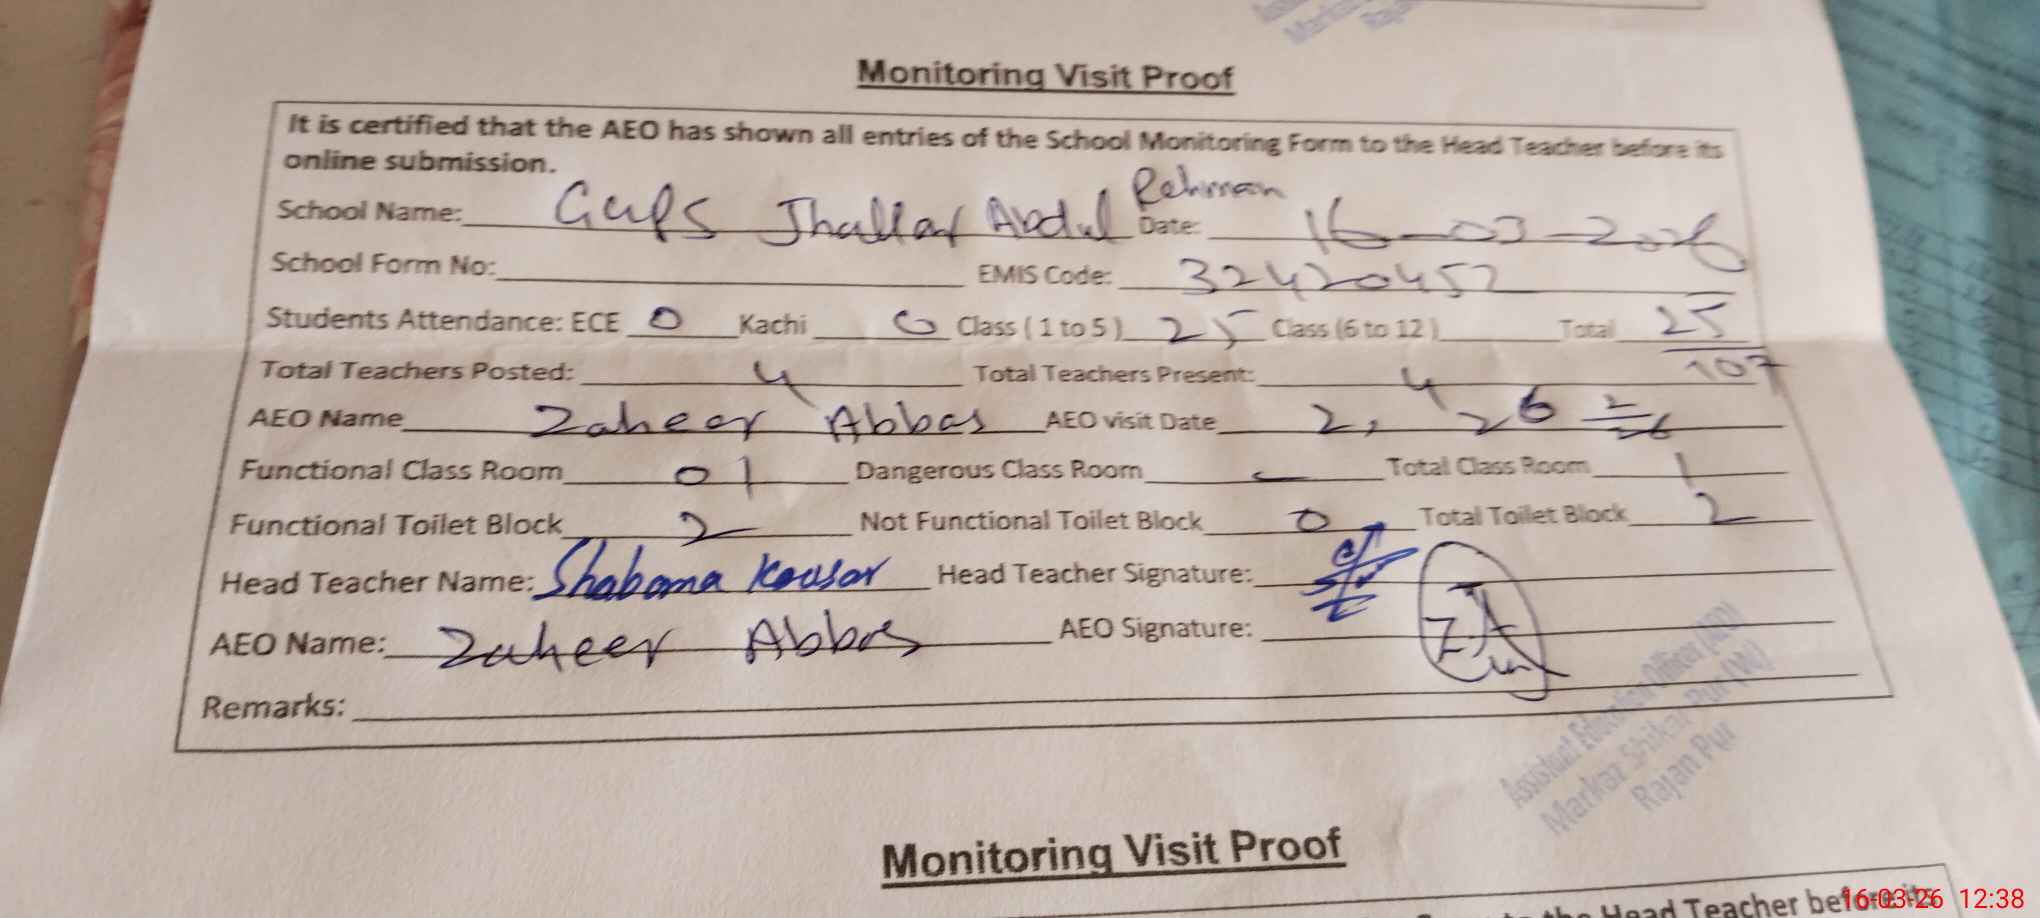 Assis
Marka
Raja
Monitoring Visit Proof
It is certified that the AEO has shown all entries of the School Monitoring Form to the Head Teacher before its
online submission.
School Name: GGPS Jhallar Abdul Rehman Date: 16-03-2026
School Form No: EMIS Code: 32420452
Students Attendance: ECE 0 Kachi 0 Class ( 1 to 5 ) 25 Class (6 to 12 ) Total 25
107
Total Teachers Posted: 4 Total Teachers Present: 4
AEO Name Zaheer Abbas AEO visit Date 2,
Functional Class Room 01 Dangerous Class Room - Total Class Room 1
Functional Toilet Block 2 Not Functional Toilet Block 0 Total Toilet Block 2
Head Teacher Name: Shabana Kousar Head Teacher Signature:
AEO Name: Zaheer Abbas AEO Signature:
Remarks:
Assistant Education Officer (AEO)
Markaz Shikar Pur (W)
Rajan Pur
Monitoring Visit Proof
the Head Teacher before its
16-03-26 12:38